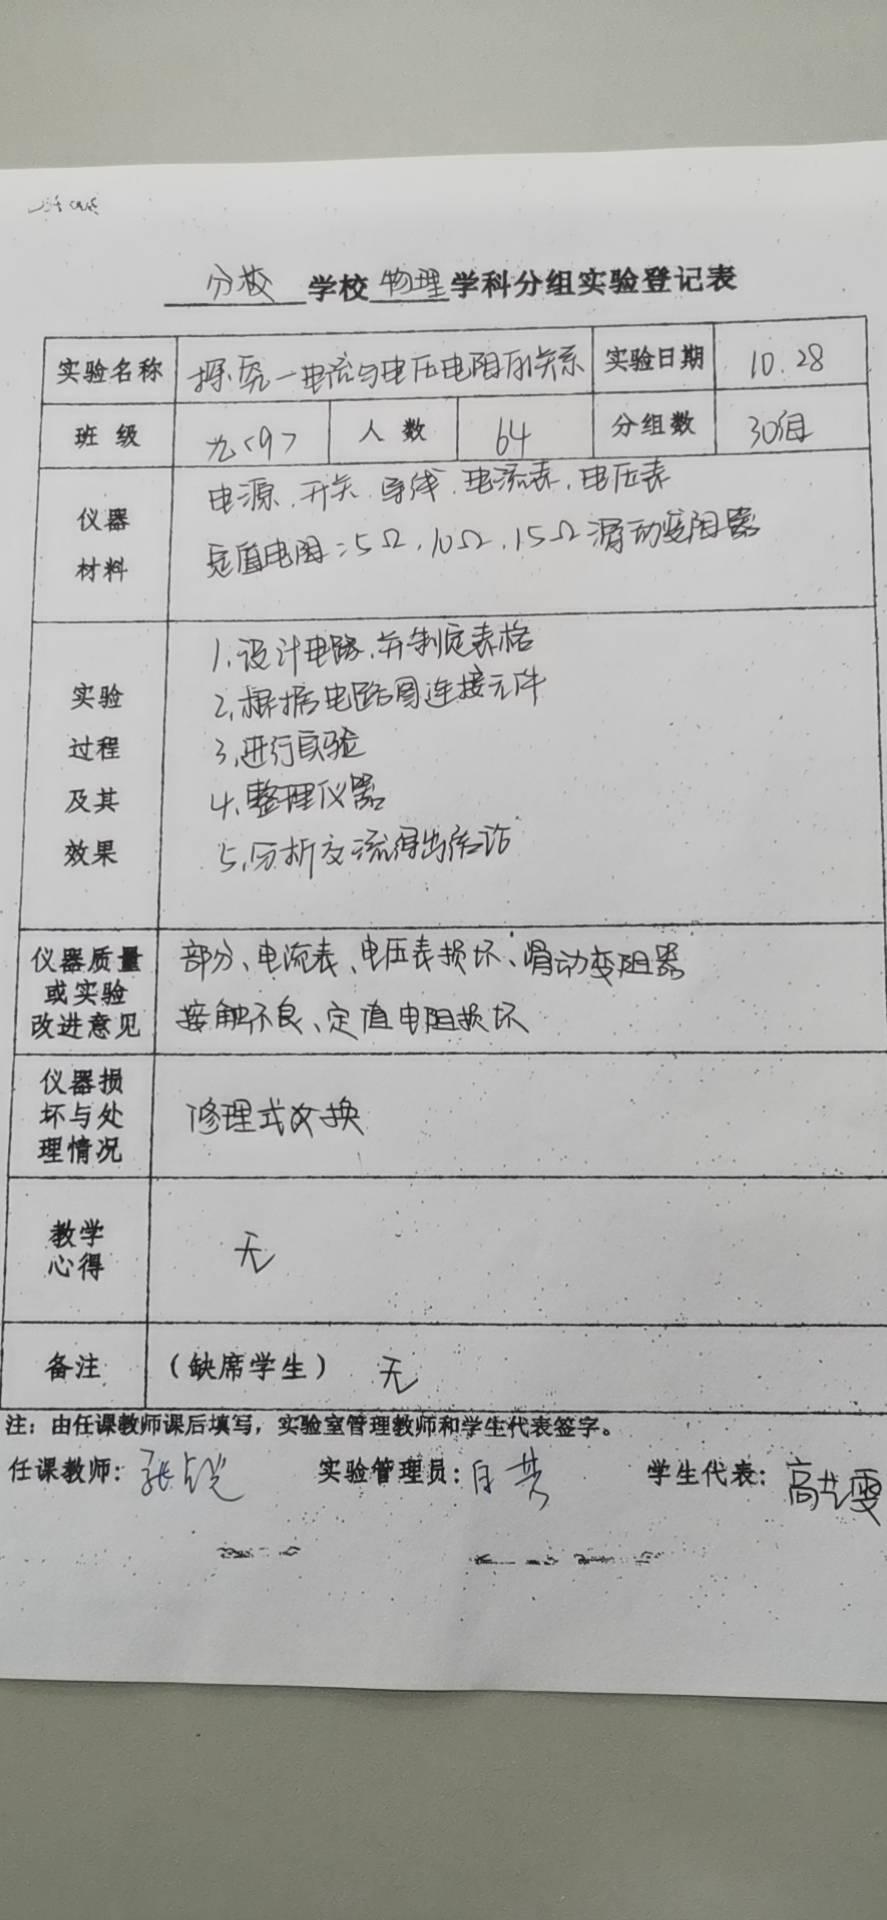 分校 学校 物理 学科分组实验登记表
实验名称 探究一电流与电压电阻的关系 实验日期 10.28
班级 九<9> 人数 64 分组数 30组
仪器材料
电源、开关、导线、电流表、电压表
定值电阻:5Ω、10Ω、15Ω 滑动变阻器
实验过程及其效果
1、设计电路、并制定表格
2、根据电路图连接元件
3、进行实验
4、整理仪器
5、分析交流得出结论
仪器质量或实验改进意见
部分、电流表、电压表损坏、滑动变阻器
接触不良、定值电阻损坏
仪器损坏与处理情况
修理或更换
教学心得
无
备注 (缺席学生) 无
注:由任课教师课后填写,实验室管理教师和学生代表签字。
任课教师: 实验管理员: 学生代表: